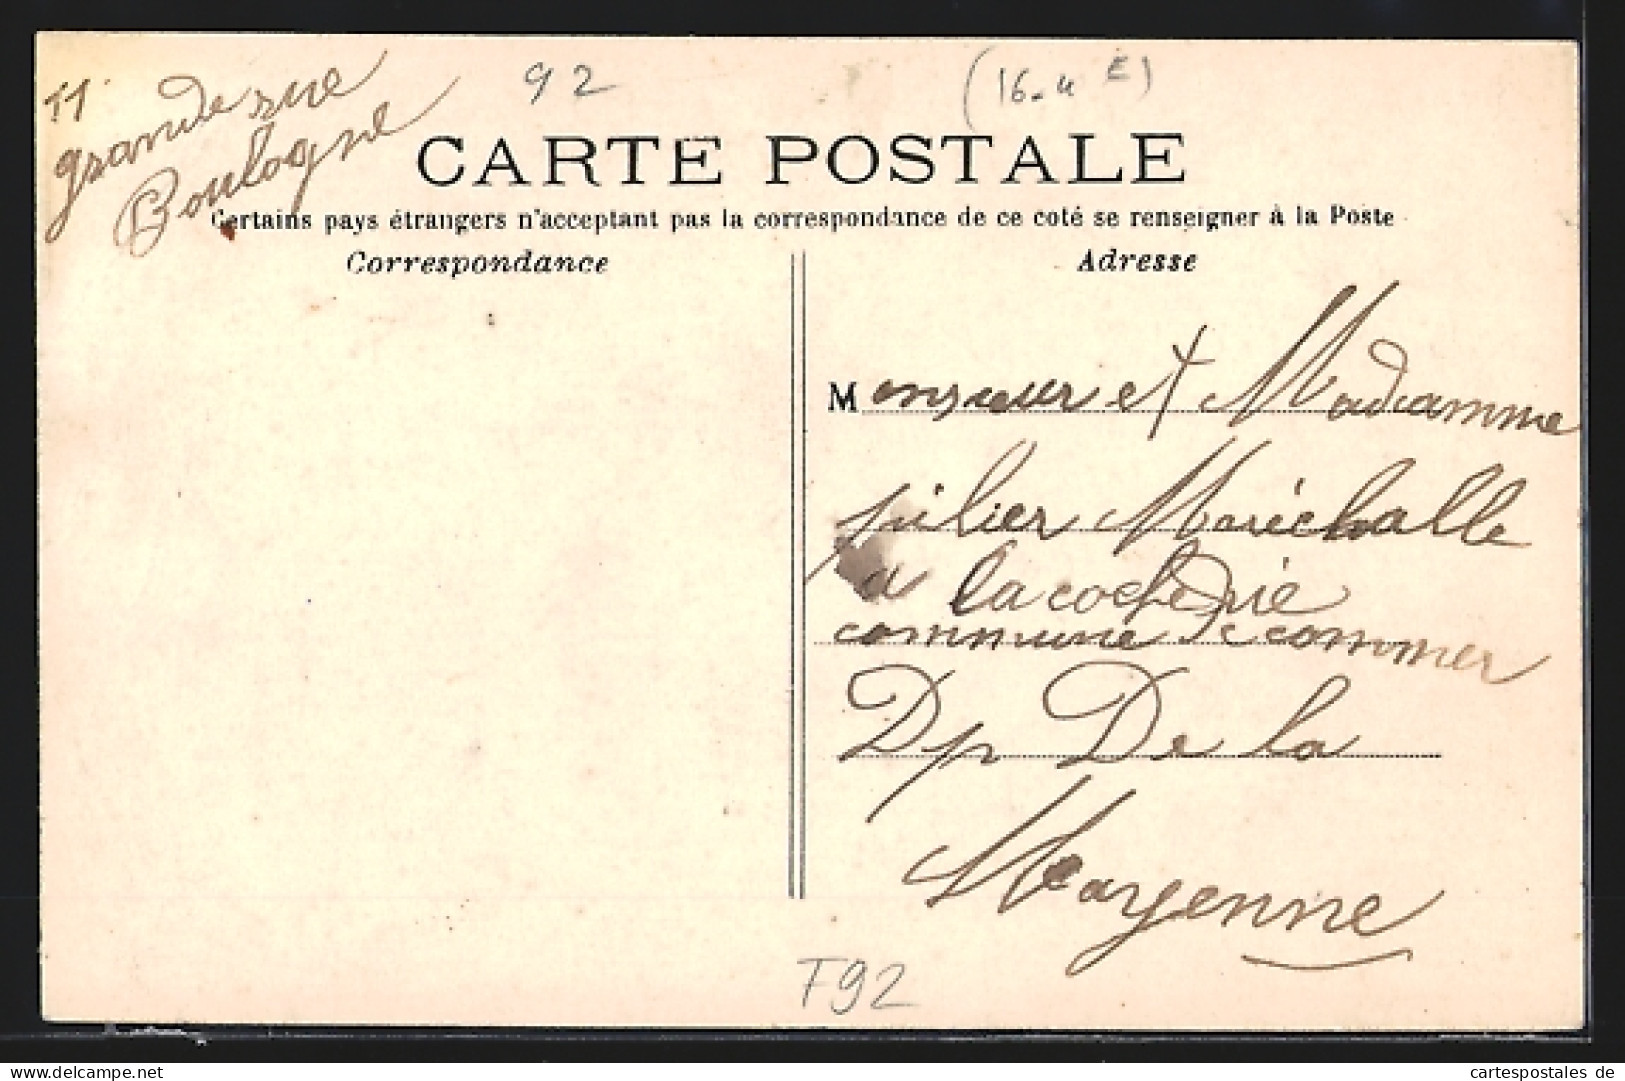 11.
grande rue
Boulogne
92
(16-4 E)
CARTE POSTALE
Certains pays étrangers n'acceptant pas la correspondance de ce coté se renseigner à la Poste
Correspondance
Adresse
Monsieur et Madamme
Maréchalle
a la cocherie
commune de commer
Dp De la
Mayenne
T92
www.cartespostales.eu
cartespostales de